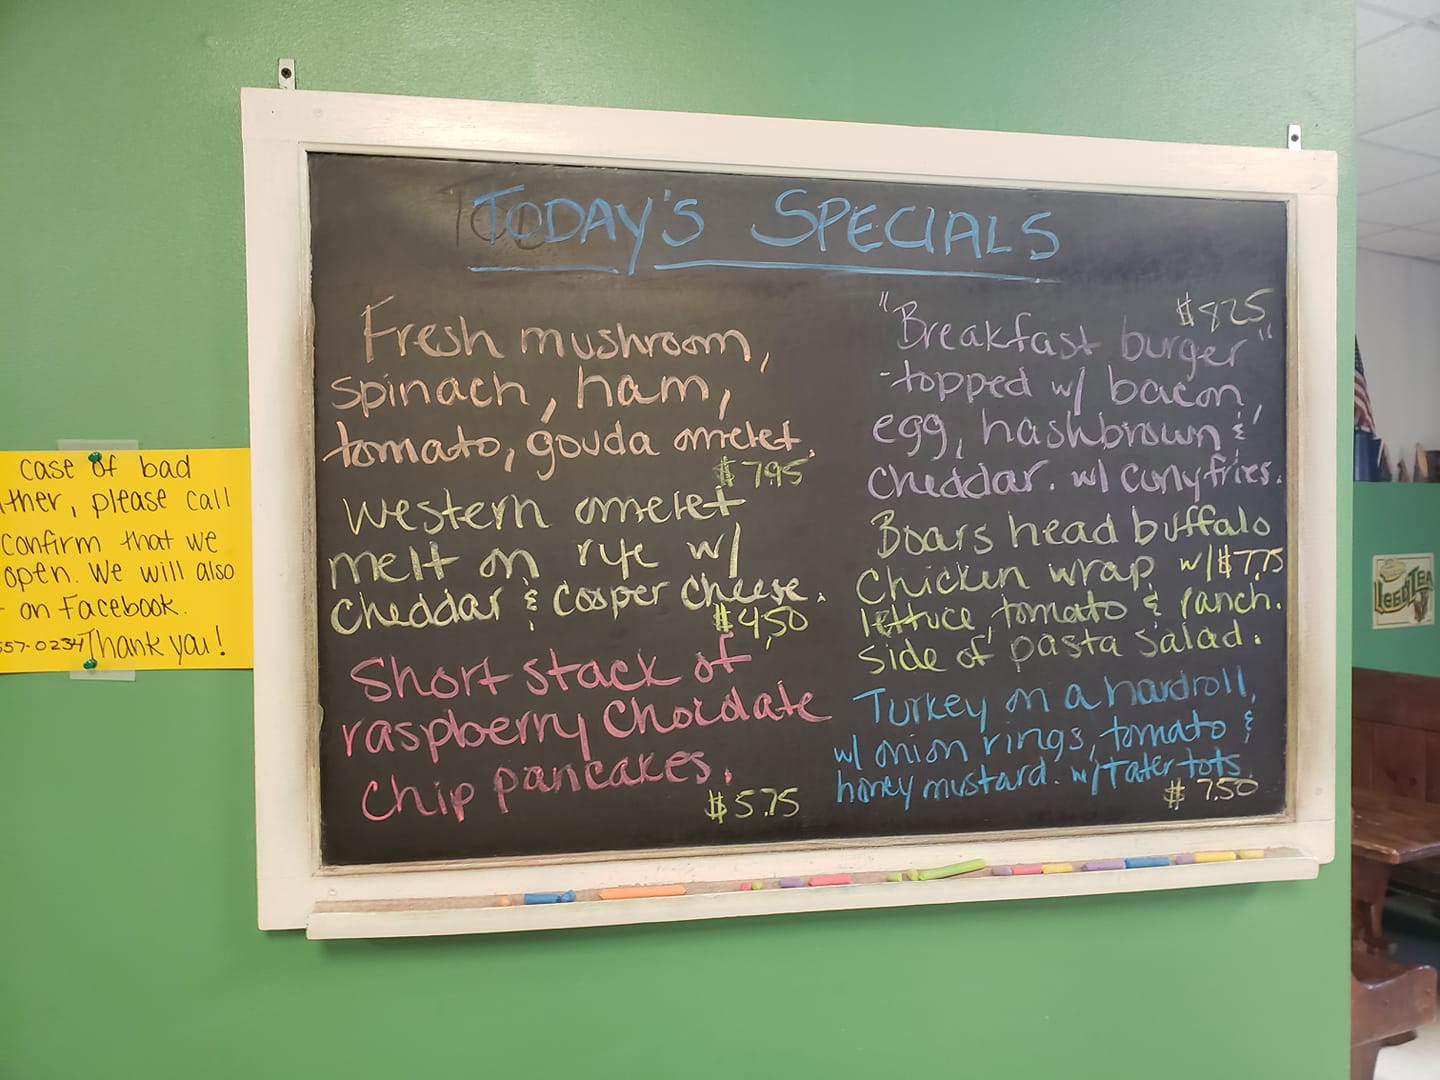 TODAY'S SPECIALS
Fresh mushroom,
spinach, ham,
tomato, gouda omelet.
$7.95
Western omelet
melt on rye w/
cheddar & cooper cheese.
$4.50
Short stack of
raspberry chocolate
chip pancakes.
$5.75
$8.25
"Breakfast burger"
-topped w/ bacon,
egg, hashbrown &
cheddar. w/ curly fries.
Boars head buffalo
chicken wrap w/ $7.75
lettuce tomato & ranch.
side of pasta salad.
Turkey on a hardroll,
w/ onion rings, tomato &
honey mustard. w/ tater tots.
$7.50
case of bad
ther, please call
confirm that we
open. We will also
on Facebook.
557-0234 Thank you!
ICED TEA